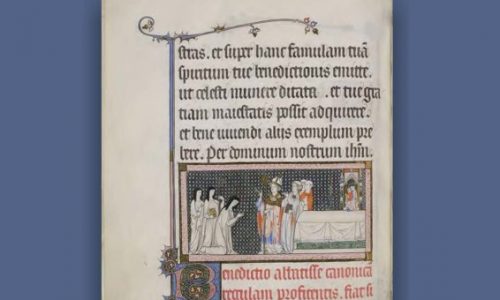 stras. et super hanc famulam tuā
spiritum tue benedictionis emitte.
ut celesti munere ditata. et tue gra
tiam maiestatis possit adquirere.
et bene uiuendi alijs exemplum pre
bere. Per dominum nostrum ihm̄.
Benedictio abbatisse canonicā
regulam profitentis. fiat si